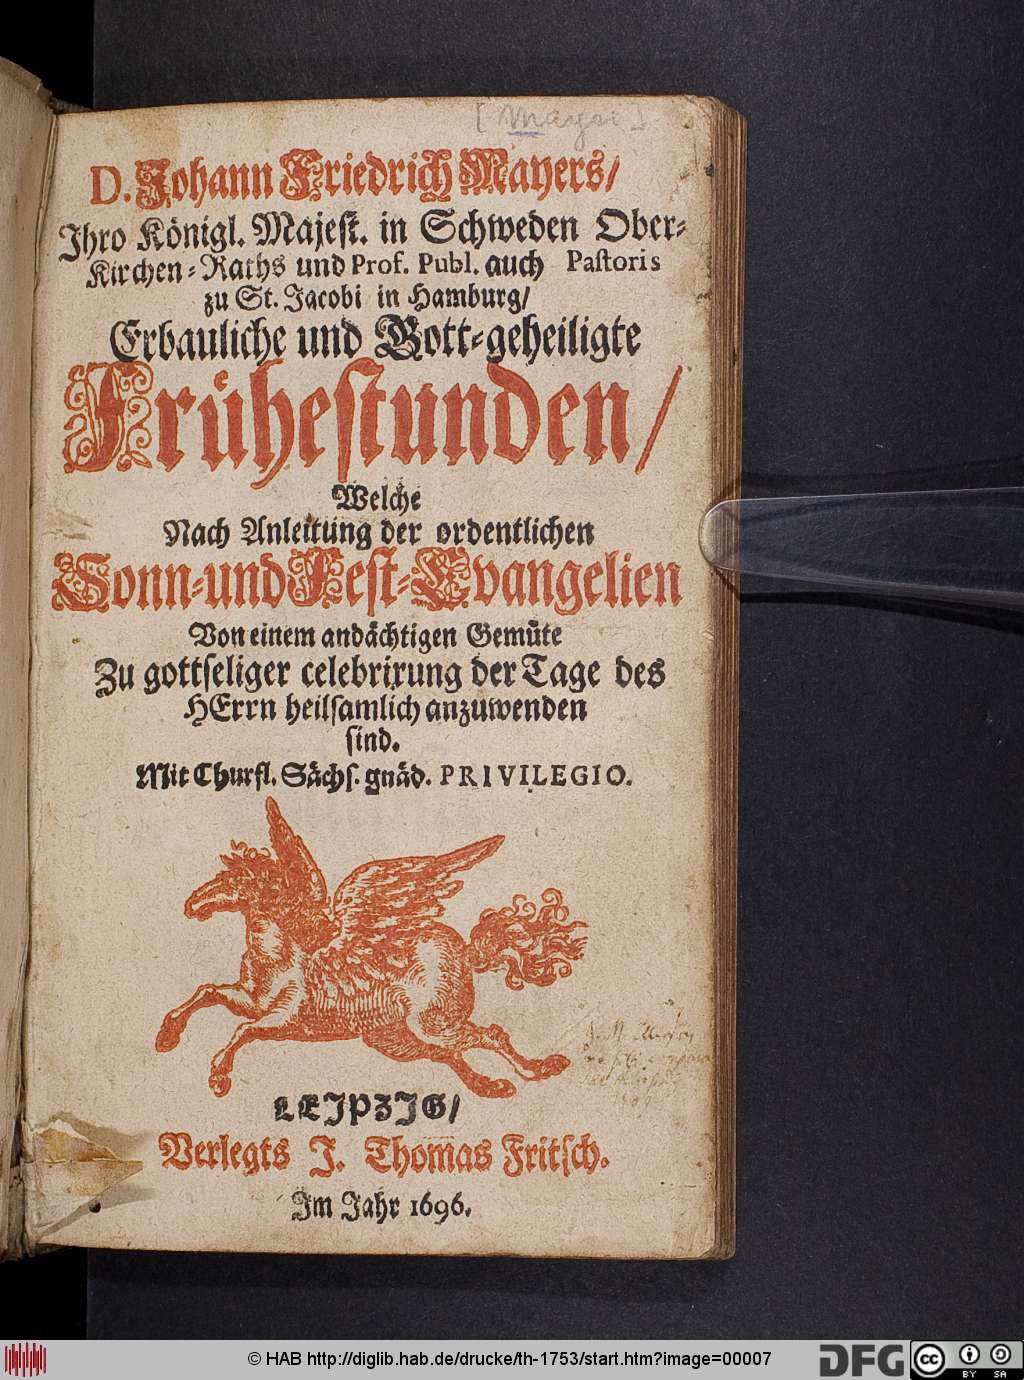 [Mayer]
D. Johann Friedrich Mayers/
Jhro Königl. Majest. in Schweden Ober-
Kirchen-Raths und Prof. Publ. auch Pastoris
zu St. Jacobi in Hamburg/
Erbauliche und Gott-geheiligte
Frůhestunden/
Welche
Nach Anleitung der ordentlichen
Sonn-und Fest-Evangelien
Von einem andächtigen Gemůte
Zu gottseliger celebrirung der Tage des
HErrn heilsamlich anzuwenden
sind.
Mit Churfl. Sächs. gnäd. PRIVILEGIO.
LEJPZJG/
Verlegts J. Thomas Fritsch.
Jm Jahr 1696.
© HAB http://diglib.hab.de/drucke/th-1753/start.htm?image=00007
DFG
cc
BY SA